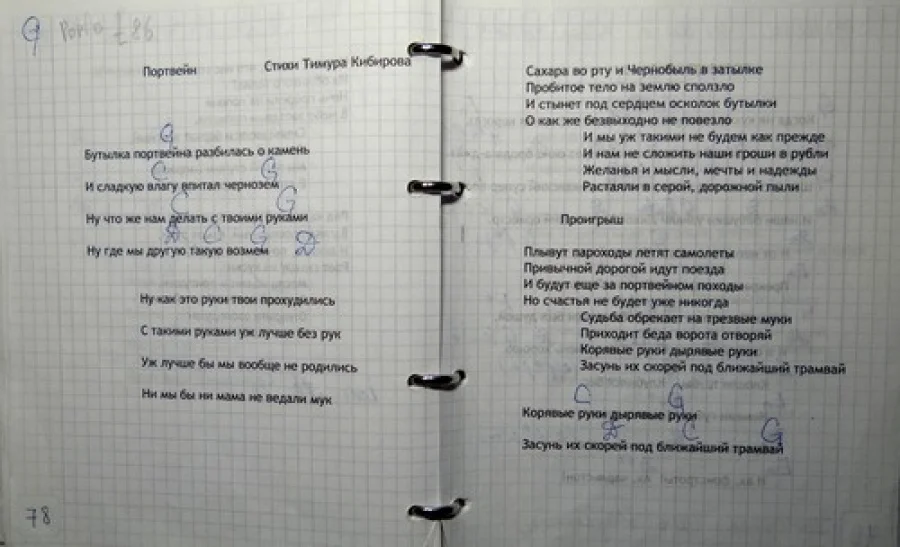 G
Портвейн Стихи Тимура Кибирова
G
Бутылка портвейна разбилась о камень
C G
И сладкую влагу впитал чернозем
C G
Ну что же нам делать с твоими руками
D C G D
Ну где мы другую такую возмем
Ну как это руки твои прохудились
С такими руками уж лучше без рук
Уж лучше бы мы вообще не родились
Ни мы бы ни мама не ведали мук
78
Сахара во рту и Чернобыль в затылке
Пробитое тело на землю сползло
И стынет под сердцем осколок бутылки
О как же безвыходно не повезло
И мы уж такими не будем как прежде
И нам не сложить наши гроши в рубли
Желанья и мысли, мечты и надежды
Растаяли в серой, дорожной пыли
Проигрыш
Плывут пароходы летят самолеты
Привычной дорогой идут поезда
И будут еще за портвейном походы
Но счастья не будет уже никогда
Судьба обрекает на трезвые муки
Приходит беда ворота отворяй
Корявые руки дырявые руки
Засунь их скорей под ближайший трамвай
C G
Корявые руки дырявые руки
D C G
Засунь их скорей под ближайший трамвай